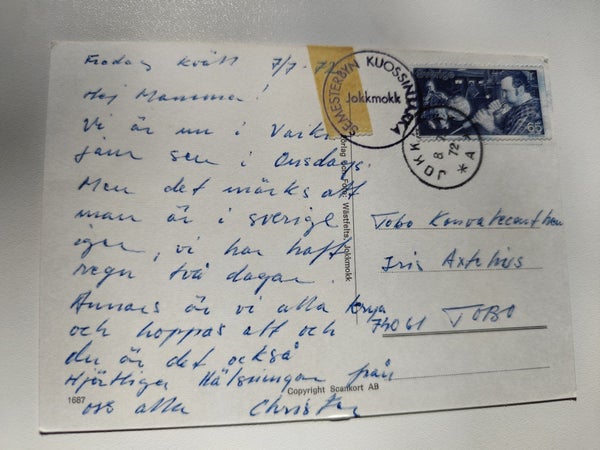 Fredag kväll 7/7-72
Hej Mamma!
Vi är nu i
sen i Onsdags.
Men det märks att
man är i Sverige
igen, vi har haft
regn två dagar.
Annars är vi alla krya
och hoppas att och
du är det också
Hjärtliga Hälsningar från
oss alla Christer
1687
Copyright Scankort AB
Förlag och Foto: Wästfelts, Jokkmokk
SEMESTERBYN KUOSSINJARKA
Jokkmokk
Sverige
65
JOKK
8.
72
* A
Tobo
Iris Axelius
74061 TOBO